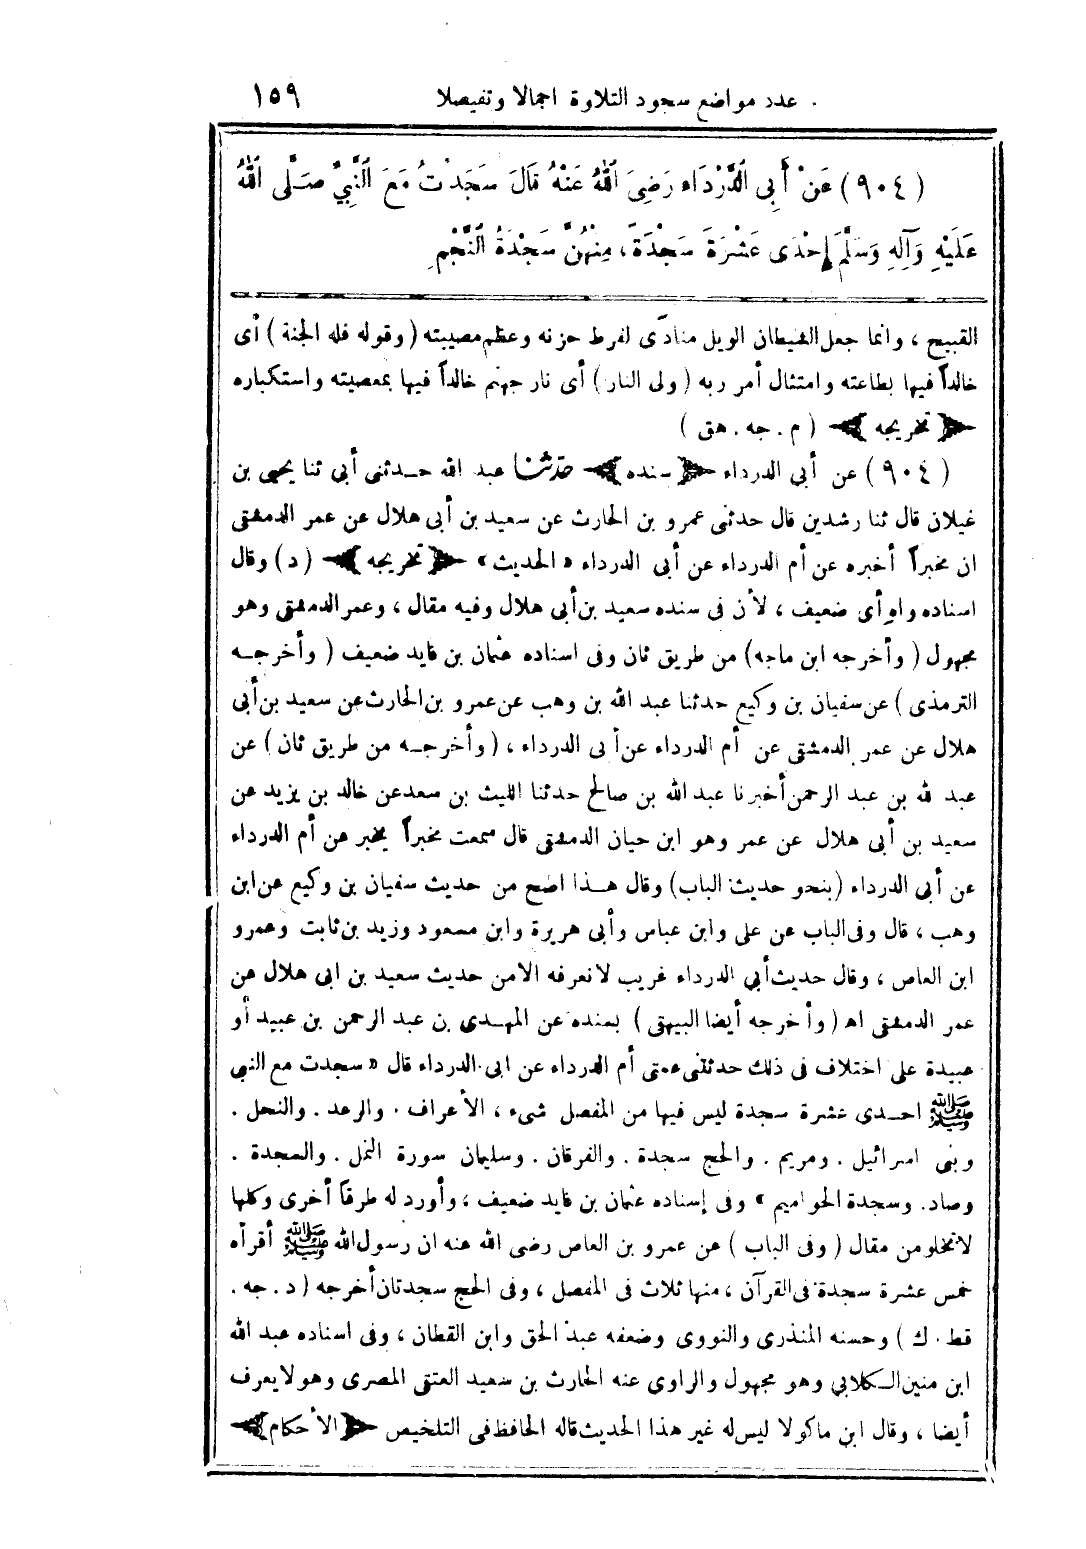 عدد مواضع سجود التلاوة اجمالا وتفيصلا ١٥٩
(٩٠٤) عَنْ أَبِى الدَّرْدَاء رَضِىَ اللهُ عَنْهُ قَالَ سَجَدْتُ مَعَ النَّبِيِّ صَلَّى اللهُ
عَلَيْهِ وَآلِهِ وَسَلَّمَ إِحْدَى عَشْرَةَ سَجْدَةً، مِنْهُنَّ سَجْدَةُ النَّجْمِ
القبيح ، وانما جعل الشيطان الويل منادًى لفرط حزنه وعظم مصيبته (وقوله فله الجنة) أى
خالداً فيها بطاعته وامتثال أمر ربه (ولى النار) أى نار جهنم خالداً فيها بمعصيته واستكباره
﴿تخريجه﴾ (م . جه . هق)
(٩٠٤) عن أبي الدرداء ﴿سنده﴾ حدثنا عبد الله حدثنى أبي ثنا يحيى بن
غيلان قال ثنا رشدين قال حدثنى عمرو بن الحارث عن سعيد بن أبى هلال عن عمر الدمشقى
ان مخبراً أخبره عن أم الدرداء عن أبى الدرداء «الحديث» ﴿تخريجه﴾ (د) وقال
اسناده واهٍ أى ضعيف ، لأن فى سنده سعيد بن أبى هلال وفيه مقال ، وعمر الدمشقى وهو
مجهول (وأخرجه ابن ماجه) من طريق ثان وفى اسناده عثمان بن فايد ضعيف (وأخرجه
الترمذى) عن سفيان بن وكيع حدثنا عبد الله بن وهب عن عمرو بن الحارث عن سعيد بن أبى
هلال عن عمر الدمشقى عن أم الدرداء عن أبى الدرداء ، (وأخرجه من طريق ثان) عن
عبد لله بن عبد الرحمن أخبرنا عبد الله بن صالح حدثنا الليث بن سعد عن خالد بن يزيد عن
سعيد بن أبى هلال عن عمر وهو ابن حيان الدمشقى قال سمعت مخبراً يخبر عن أم الدرداء
عن أبى الدرداء (بنحو حديث الباب) وقال هذا اصح من حديث سفيان بن وكيع عن ابن
وهب ، قال وفى الباب عن على وابن عباس وأبى هريرة وابن مسعود وزيد بن ثابت وعمرو
ابن العاص ، وقال حديث أبي الدرداء غريب لا نعرفه الا من حديث سعيد بن ابى هلال عن
عمر الدمشقى اه (وأخرجه أيضا البيهقى) بسنده عن المهدى بن عبد الرحمن بن عبيد أو
عبيدة على اختلاف فى ذلك حدثتنى عمتى أم الدرداء عن ابى الدرداء قال «سجدت مع النبى
ﷺ احدى عشرة سجدة ليس فيها من المفصل شىء ، الأعراف . والرعد . والنحل .
وبنى اسرائيل . ومريم . والحج سجدة . والفرقان . وسليمان سورة النمل . والسجدة .
وصاد . وسجدة الحواميم» وفى إسناده عثمان بن فايد ضعيف ، وأورد له طرقاً أخرى وكلها
لا تخلو من مقال (وفى الباب) عن عمرو بن العاص رضى الله عنه ان رسول الله ﷺ أقرأه
خمس عشرة سجدة فى القرآن ، منها ثلاث فى المفصل ، وفى الحج سجدتان أخرجه (د . جه .
قط . ك) وحسنه المنذرى والنووى وضعفه عبد الحق وابن القطان ، وفى اسناده عبد الله
ابن منين الكلابي وهو مجهول والراوى عنه الحارث بن سعيد العتقى المصرى وهو لا يعرف
أيضا ، وقال ابن ماكولا ليس له غير هذا الحديث قاله الحافظ فى التلخيص ﴿الأحكام﴾